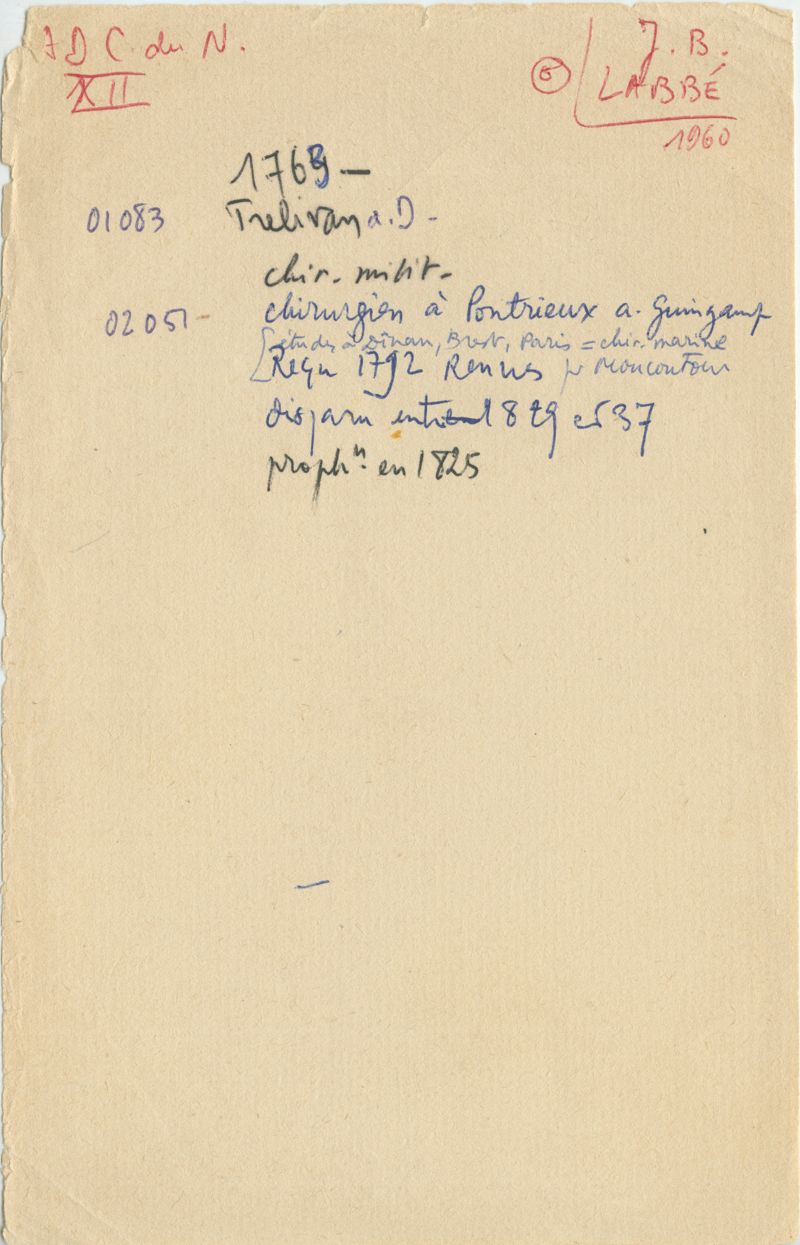 A D C. du N.
XII
6
J. B.
LABBÉ
1960
1763 —
01083 Trelivan a. D -
chir. milit -
02051 - chirurgien à Pontrieux a. Guingamp
études à Dinan, Brest, Paris = chir. marine
Reçu 1792 Rennes pr Moncontour
disparu entre 1829 et 37
proph.n en 1825